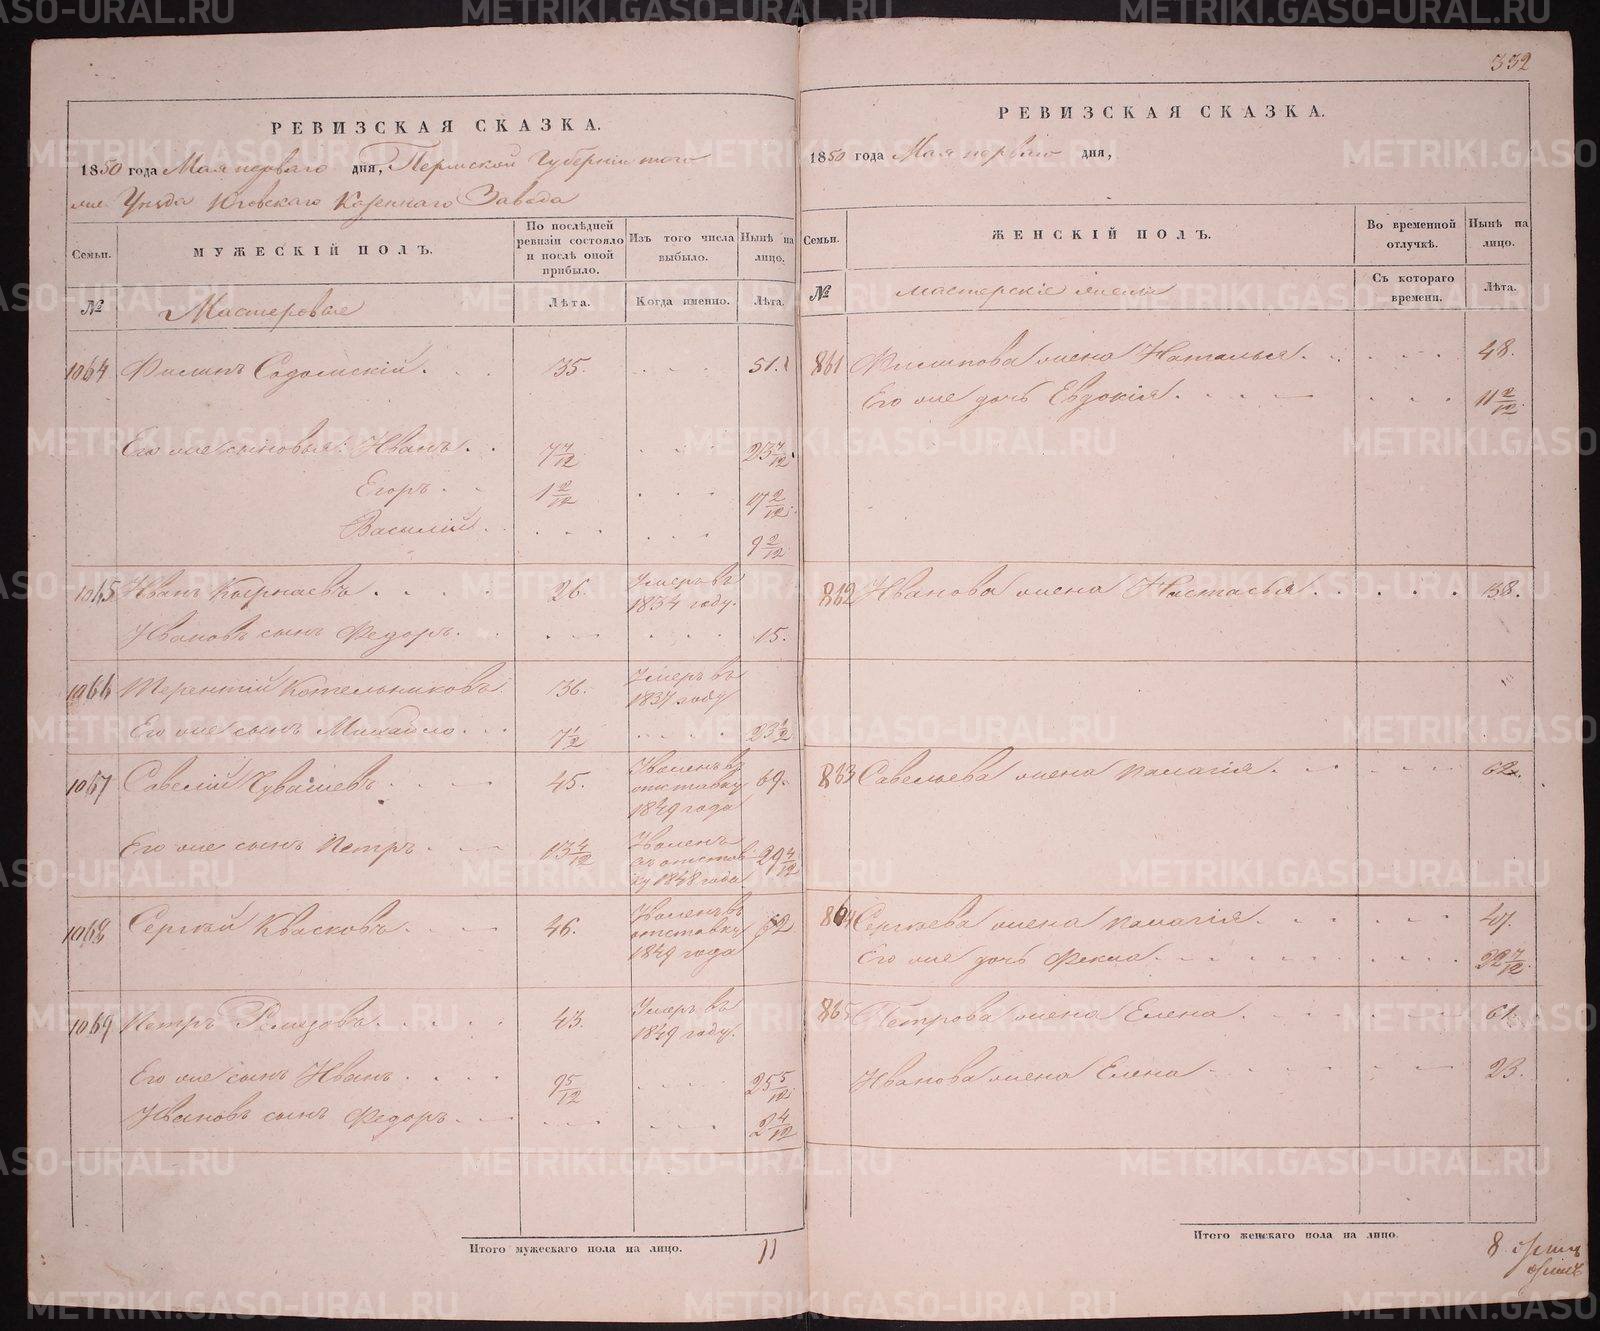 332
РЕВИЗСКАЯ СКАЗКА.
1850 года Мая перваго дня, Пермской Губерніи того
же Уѣзда Юговскаго Казеннаго Завода
Семьи.
МУЖЕСКІЙ ПОЛЪ.
По послѣдней ревизіи состояло и послѣ оной прибыло.
Изъ того числа выбыло.
Нынѣ на лицо.
№
Мастеровые
Лѣта.
Когда именно.
Лѣта.
1064 Филипъ 35. 51.
Его же сыновья: Иванъ 7 7/12 23 7/12
Егоръ 1 2/12 17 2/12
Василій 9 2/12
1065 Иванъ 26. Умеръ въ 1834 году.
Ивановъ сынъ Федоръ 15.
1066 Терентій Котельниковъ 36. Умеръ въ 1837 году
Его же сынъ Михайло 7 1/2 23 1/2
1067 Савелій Чувашевъ 45. Уволенъ въ отставку 1849 года 69.
Его же сынъ Петръ 13 4/12 Уволенъ въ отставку 1848 года 29 4/12
1068 Сергѣй Квасковъ 46. Уволенъ въ отставку 1849 года 62
1069 Петръ Ремезовъ 43. Умеръ въ 1849 году.
Его же сынъ Иванъ 9 5/12 25 5/12
Ивановъ сынъ Федоръ 2 4/12
Итого мужескаго пола на лицо. 11
РЕВИЗСКАЯ СКАЗКА.
1850 года Мая перваго дня,
Семьи.
ЖЕНСКІЙ ПОЛЪ.
Во временной отлучкѣ.
Нынѣ на лицо.
№
мастерскіе жены
Съ котораго времени.
Лѣта.
861 Филипова жена Наталья 48.
Его же дочь Евдокія 11 2/12
862 Иванова жена Настасья 38.
863 Савельева жена Палагія 62.
864 Сергѣева жена Палагія 47.
Его же дочь Фекла 22 7/12
865 Петрова жена Елена 61.
Иванова жена Елена 23.
Итого женскаго пола на лицо. 8
METRIKI.GASO-URAL.RU